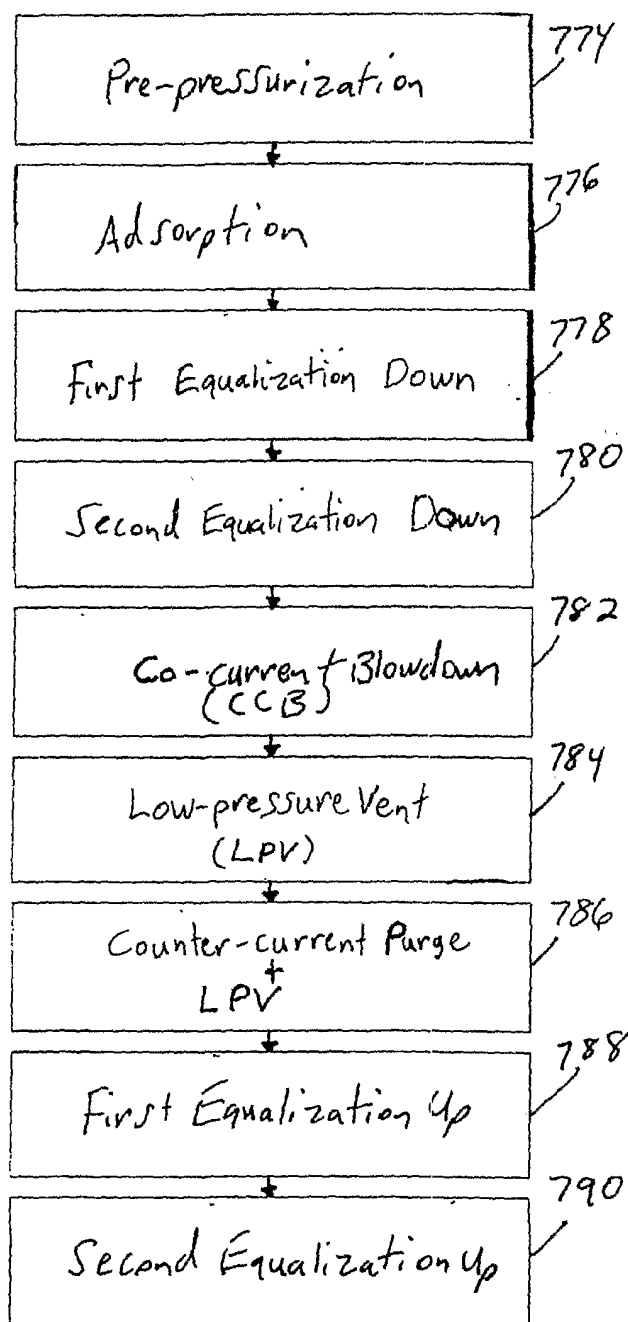 Pre-pressurization
774
Adsorption
776
First Equalization Down
778
Second Equalization Down
780
Co-current Blowdown
(CCB)
782
Low-pressure Vent
(LPV)
784
Counter-current Purge
+
LPV
786
First Equalization Up
788
Second Equalization Up
790